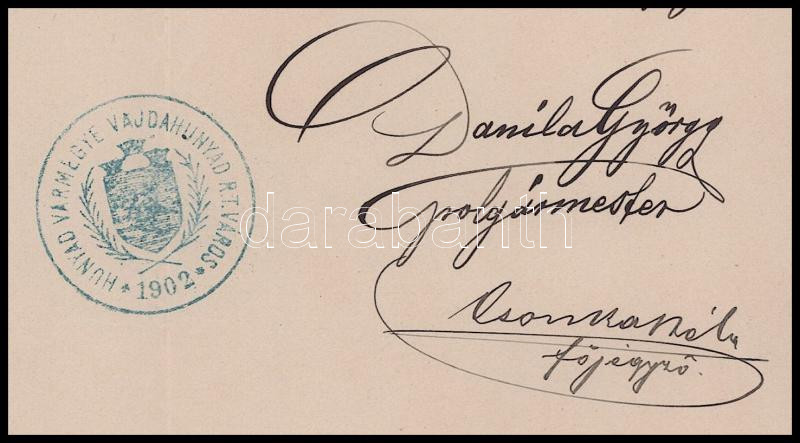 HUNYAD VÁRMEGYE VAJDAHUNYAD R.T. VÁROS
* 1902 *
Danila György
polgármester
Csonka Béla
főjegyző.
darabanth